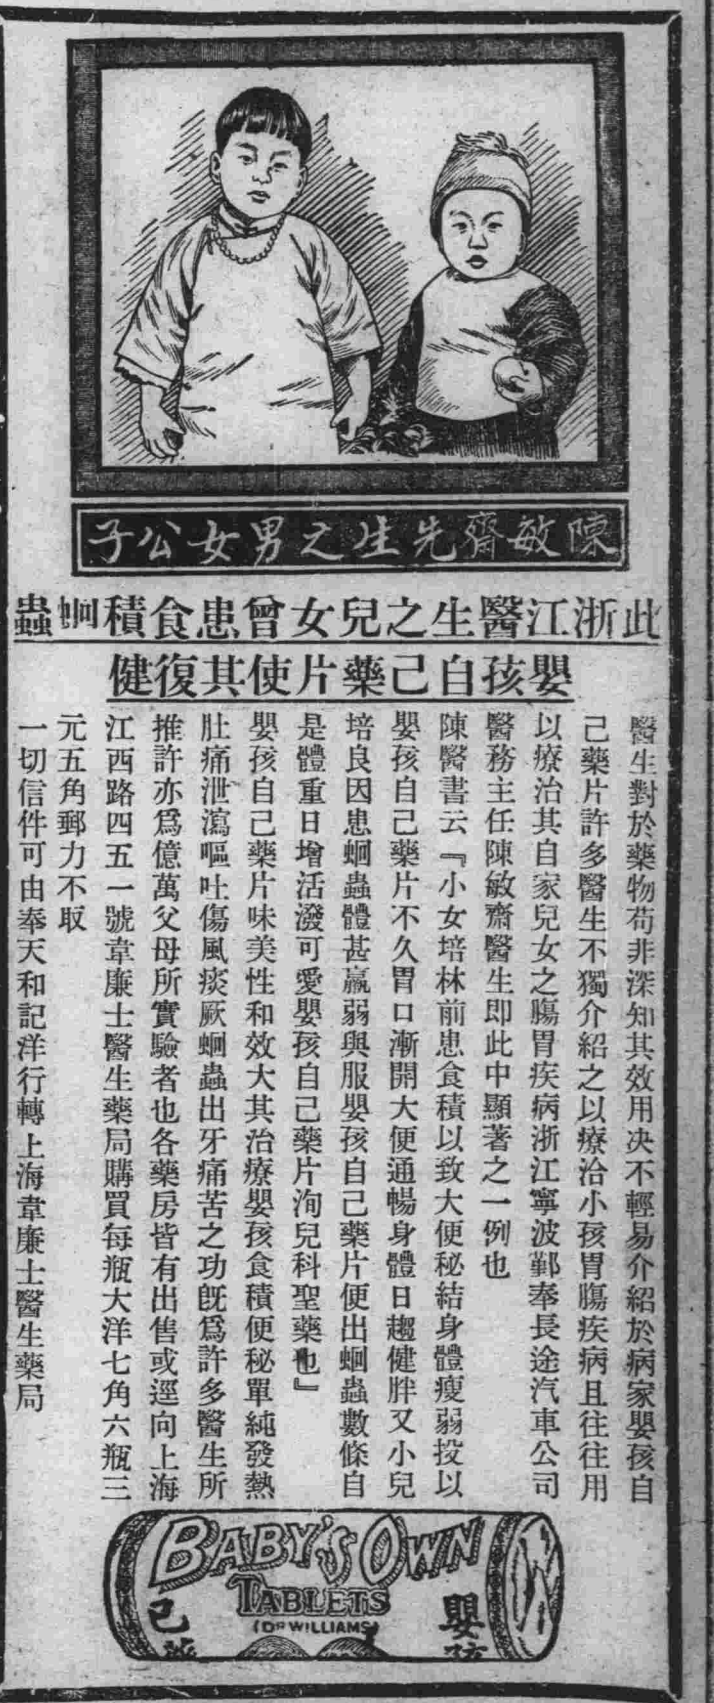 陳敏齋先生之男女公子
此浙江醫生之兒女曾患食積蛔蟲
嬰孩自己藥片使其復健
醫生對於藥物苟非深知其效用决不輕易介紹於病家嬰孩自
己藥片許多醫生不獨介紹之以療治小孩胃腸疾病且往往用
以療治其自家兒女之腸胃疾病浙江寧波鄞奉長途汽車公司
醫務主任陳敏齋醫生即此中顯著之一例也
陳醫書云『小女培林前患食積以致大便秘結身體瘦弱投以
嬰孩自己藥片不久胃口漸開大便通暢身體日趨健胖又小兒
培良因患蛔蟲體甚羸弱與服嬰孩自己藥片便出蛔蟲數條自
是體重日增活潑可愛嬰孩自己藥片洵兒科聖藥也』
嬰孩自己藥片味美性和效大其治療嬰孩食積便秘單純發熱
肚痛泄瀉嘔吐傷風痰厥蛔蟲出牙痛苦之功旣爲許多醫生所
推許亦爲億萬父母所實驗者也各藥房皆有出售或逕向上海
江西路四五一號韋廉士醫生藥局購買每瓶大洋七角六瓶三
元五角郵力不取
一切信件可由奉天和記洋行轉上海韋廉士醫生藥局
BABY'S OWN
TABLETS
(DR WILLIAMS)
嬰孩
己藥